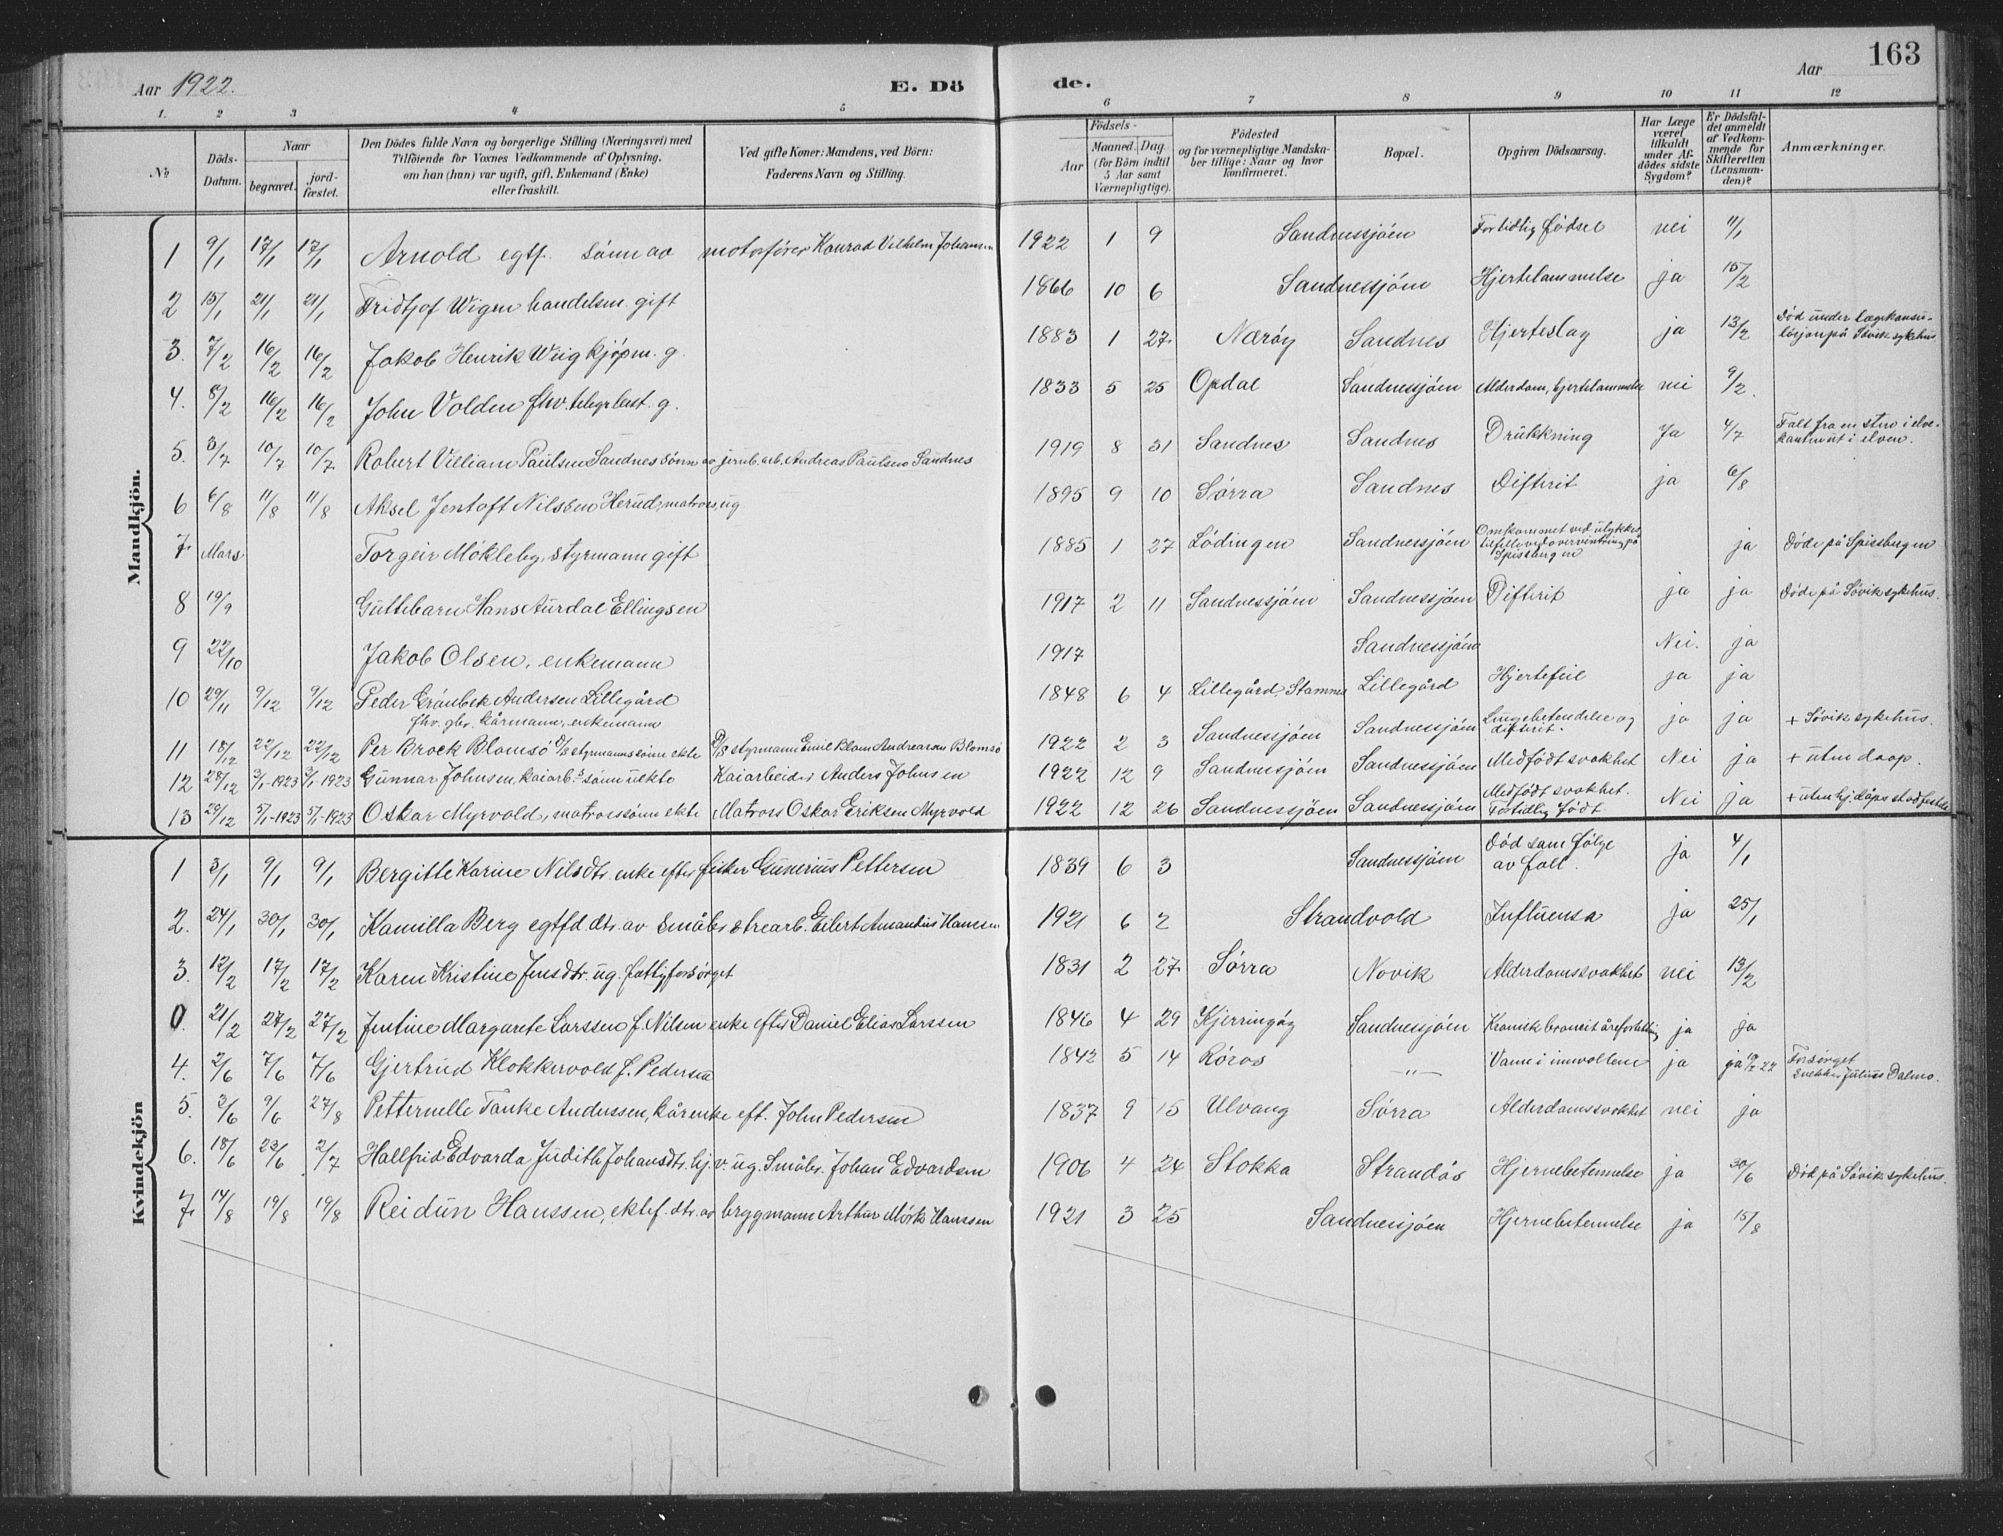 Aar 1922. E. Dö de. Aar 163
1. 2 3 4 5 6 7 8 9 10 11 12
№ Döds-Datum. Naar begravet. jord-fæstet. Den Dödes fulde Navn og borgerlige Stilling (Næringsvei) med Tilföiende for Voxnes Vedkommende af Oplysning, om han (hun) var ugift, gift, Enkemand (Enke) eller fraskilt. Ved gifte Koner: Mandens, ved Börn: Faderens Navn og Stilling. Födsels- Aar Maaned. Dag (for Börn indtil 5 Aar samt Værnepligtige). Födested og for værnepligtige Mandska-ber tillige: Naar og hvor konfirmeret. Bopæl. Opgiven Dödsaarsag. Har Læge været tilkaldt under Af-dödes sidste Sygdom? Er Dödsfal-det anmeldt af Vedkom-mende for Skifteretten (Lensman-den)? Anmærkninger.
Mandkjön.
1 9/1 17/1 17/1 Arnold egtf. sönn av motorförer Konrad Vilhelm Johansen 1922 1 9 Sandnessjöen For tidlig födsel nei 11/1
2 15/1 21/1 21/1 Fridtjof Wigen handelsm. gift 1866 10 6 Sandnessjöen Hjertelammelse ja 15/2
3. 7/2 16/2 16/2 Jakob Henrik Wiig kjøpm. g. 1883 1 27 Nærøy Sandnes Hjerteslag ja 13/2 Död under lægekonsu-lasjon på Søvik sykehus
4. 8/2 16/2 16/2 John Volden fhv. telegr.best. g. 1833 5 25 Opdal Sandnessjöen Alderdom, hjertelammelse nei 9/2
5. 3/7 10/7 10/7 Robert Villiam Paulsen Sandnes sönn av jernb.arb. Andreas Paulsen Sandnes 1919 8 31 Sandnes Sandnes Drukkning Ja 4/7 Falt fra en sten i elve-kanten ut i elven.
6 6/8 11/8 11/8 Aksel Jentoft Nilssen Herud, matros, ug 1895 9 10 Sørra Sandnes Difterit ja 6/8
7 Mars Torgeir Mökleby, styrmann gift 1885 1 27 Lödingen Sandnessjöen Omkommet ved ulykkes-tilfelle ved overvintring på Spissbergen ja Döde på Spissbergen
8 19/9 Guttebarn Hans Aurdal Ellingsen 1917 2 11 Sandnessjöen Sandnessjöen Difterit ja ja Döde på Søvik sykehus.
9 22/10 Jakob Olsen, enkemann 1917 Sandnessjöen Nei. ja
10 29/11 9/12 9/12 Peder Grönbek Andersen Lillegård 1848 6 4 Lillegård, Stamnes Lillegård Hjertefeil ja ja
fhv. gbr. kårmann, enkemann
11 18/12 22/12 22/12 Per Brock Blomsö styrmanns sönn ekte styrmann Emil Blom Andreassen Blomsö 1922 2 3 Sandnessjöen Sandnessjöen Lungebetendelse og difterit. ja ja + Søvik sykehus.
12 28/12 3/1-1923 3/1-1923 Gunnar Johnsen, kaiarb.s sönn uekte Kaiarbeider Anders Johnsen 1922 12 9 Sandnessjöen Sandnessjöen Medfödt svakhet Nei ja + uten daap.
13 29/12 5/1-1923 5/1-1923 Oskar Myrvold, matrossönn ekte Matros Oskar Eriksen Myrvold 1922 12 26 Sandnessjöen Sandnessjöen Medfödt svakhet. For tidlig födt Nei ja + uten hj.dåps stadfestelse
Kvindekjön
1 3/1 9/1 9/1 Bergitte Karine Nilsdtr. enke efter fisker Gunerius Pettersen 1839 6 3 Sandnessjöen Död som fölge av fall. ja 4/1
2. 24/1 30/1 30/1 Kamilla Berg egtfd. dtr. av Småbr. strearb. Eilert Amandius Hansen 1921 6 2 Strandvold Influensa ja 25/1
3. 12/2 17/2 17/2 Karen Kristine Jensdtr. ug. fattigforsörget 1831 2 27 Sørra Novik Alderdomssvakhet nei 13/2
0. 21/2 27/2 27/2 Jentine Margarete Larssen f. Nilsen enke efter Daniel Elias Larssen 1846 4 29 Kjerringöy Sandnessjöen Kronisk bronkit åreforkalkning ja ja
4. 2/6 7/6 7/6 Gjertrud Klokkervold f. Pedersen 1842 5 14 Röros —„— Vann i innvollene ja ja Forsørget snekker Julius Dalmo.
5. 3/6 9/6 27/8 Petternelle Tanke Anderssen, kårenke eft. John Pedersen 1837 9 15 Ulvang Sørra Alderdomssvakhet nei ja
6. 18/6 23/6 2/7 Hallfrid Edvarda Judith Johansdtr. hj. v. ug. Småbr. Johan Edvardsen 1906 4 24 Stokka Strandås Hjernebetennelse ja 30/6 Död på Søvik sykehus.
7 14/8 19/8 19/8 Reidun Hanssen, ektef. dtr. av bryggmann Arthur Mörk Hanssen 1921 3 25 Sandnessjöen Hjernebetennelse ja 15/8